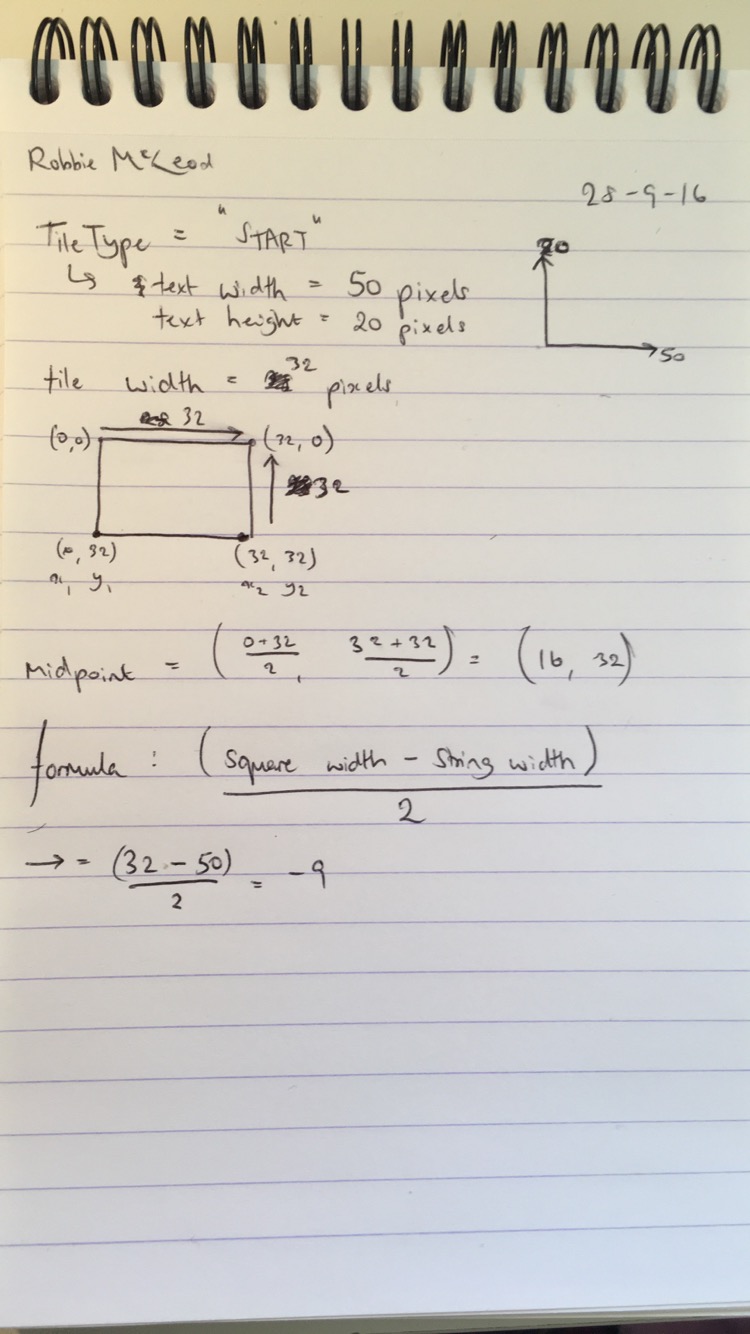 Robbie McLeod
28-9-16
TileType = "START"
↳ text width = 50 pixels
text height = 20 pixels
20
50
tile width = 32 pixels
32
(0,0)
(32, 0)
32
(0, 32)
(32, 32)
x₁ y₁
x₂ y₂
Midpoint = (0+32/2, 32+32/2) = (16, 32)
formula : (square width - string width)/2
→ = (32 - 50)/2 = -9